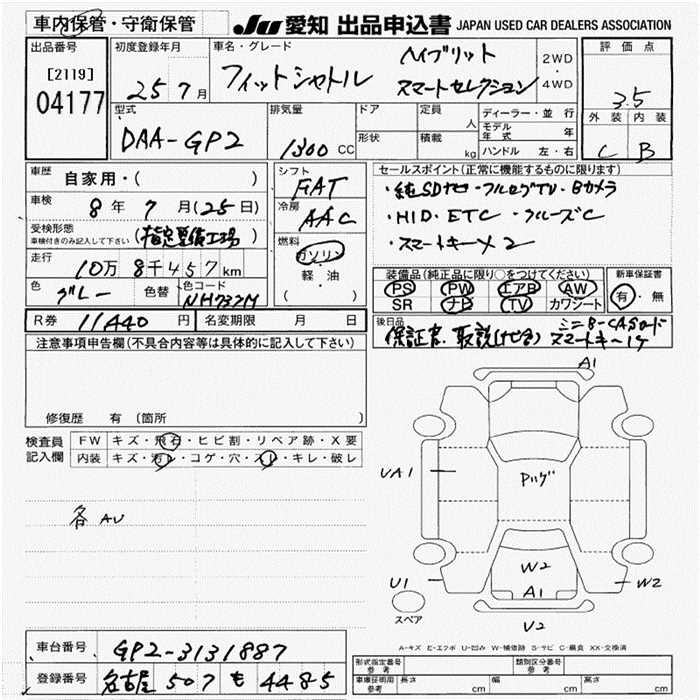 車内保管・守衛保管
JU 愛知 出品申込書 JAPAN USED CAR DEALERS ASSOCIATION
出品番号
[2119]
04177
初度登録年月
25 7月
車名・グレード
フィットシャトル
ハイブリット
スマートセレクション
2WD
・
4WD
評価点
3.5
外装 内装
C B
型式
DAA-GP2
排気量
1300 CC
ドア
形状
定員 人
積載 kg
ディーラー・並行
モデル年式 年
ハンドル 左・右
車歴
自家用・( )
車検
8年 7月(25日)
受検形態
車検付きのみ記入して下さい
(指定整備工場)
走行
10万8千457km
色
グレー
色替
色コード
NH737M
シフト
FAT
冷房
AAC
燃料
ガソリン
軽・油
( )
セールスポイント(正常に機能するものに限ります)
・純SDナビ・フルセグTV・Bカメラ
・HID・ETC・クルーズC
・スマートキー×2
装備品(純正品に限り○をつけてください)
PS PW エアB AW
SR ナビ TV カワシート
新車保証書
有・無
R券 11440円
名変期限 月 日
後日品
保証書、取説(ナビ含) ミニB-CASカード
スマートキー1ケ
注意事項申告欄(不具合内容等は具体的に記入して下さい)
修復歴 有 (箇所 )
検査員
記入欄
FW キズ・飛石・ヒビ割・リペア跡・X要
内装 キズ・汚レ・コゲ・穴・スレ・キレ・破レ
各AU
A1
UA1
Pハゲ
W2
A1
U1
W2
V2
スペア
A-キズ E-エクボ U-凹み W-補修跡 S-サビ C-腐食 XX-交換済
車台番号
GP2-3131887
登録番号
名古屋 507 も 4485
形式指定番号
参考
類別区分番号
参考
車庫証明用
参考
長さ cm 幅 cm 高さ cm